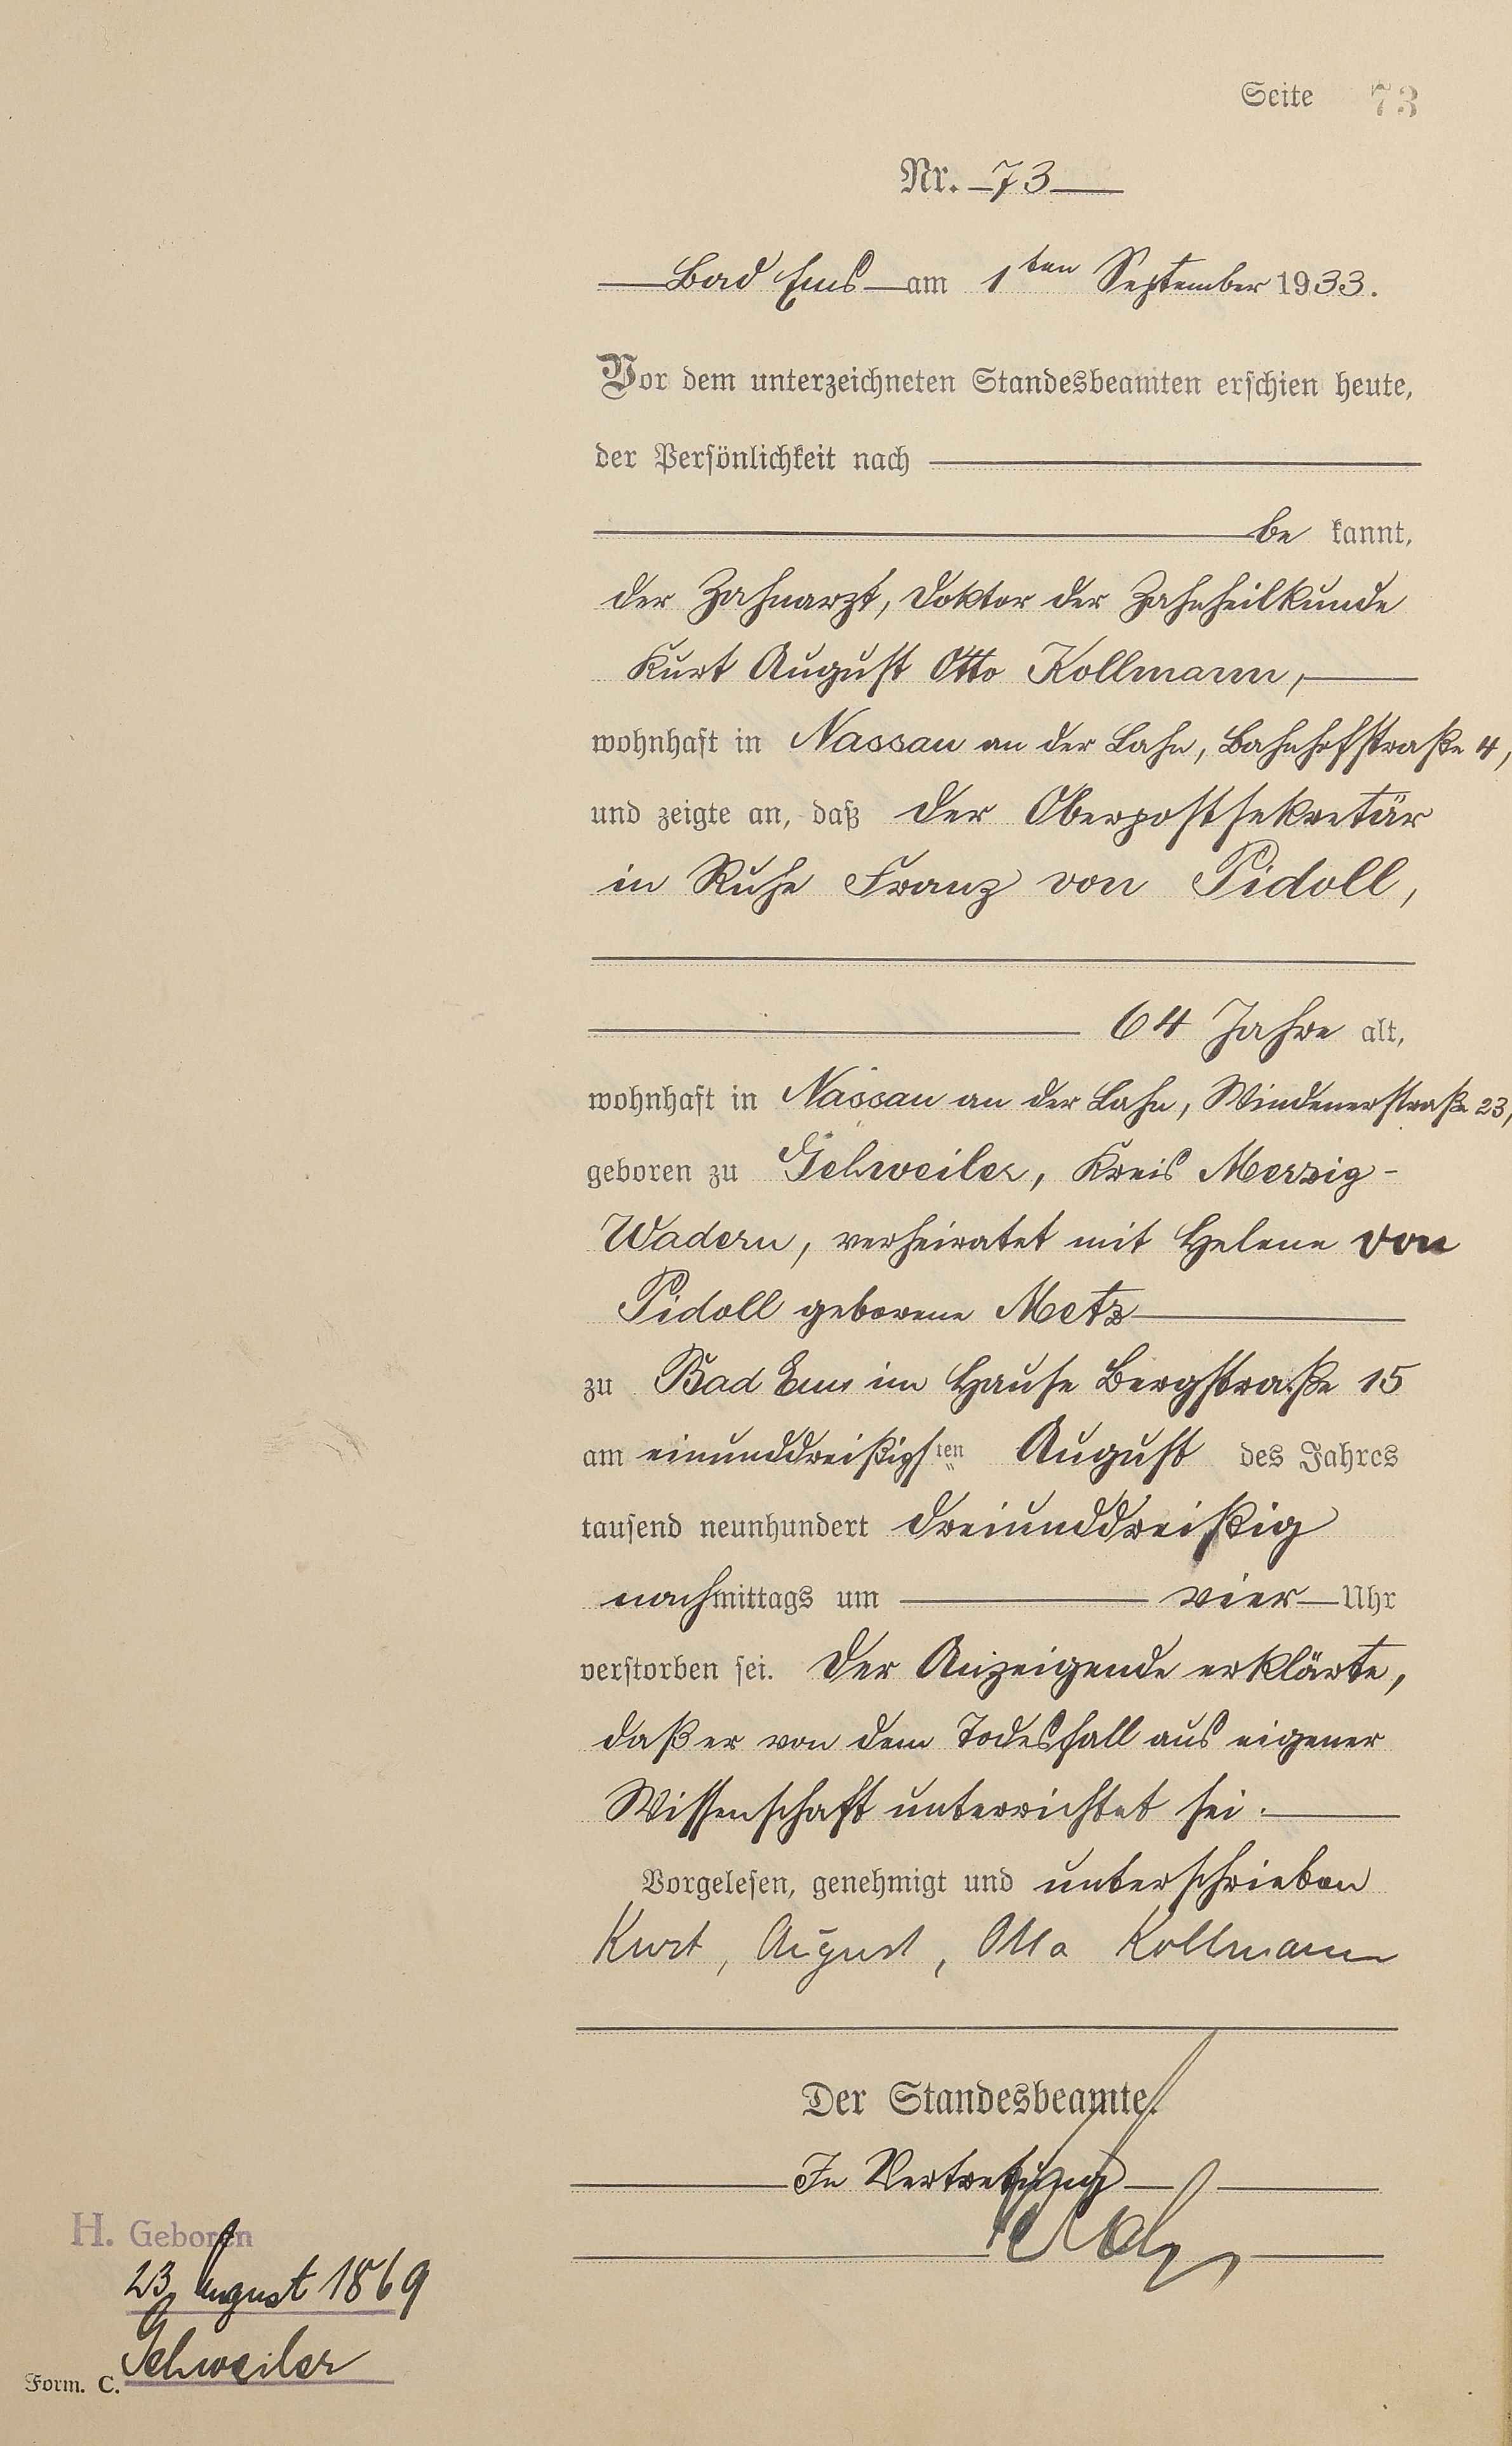 Seite 73
Nr. 73
Bad Ems am 1ten September 1933.
Vor dem unterzeichneten Standesbeamten erschien heute,
der Persönlichkeit nach
be kannt,
der Zahnarzt, Doktor der Zahnheilkunde
Kurt August Otto Kollmann,
wohnhaft in Nassau an der Lahn, Bahnhofstraße 4,
und zeigte an, daß der Oberpostsekretär
in Ruhe Franz von Pidoll,
64 Jahre alt,
wohnhaft in Nassau an der Lahn, Windenerstraße 23,
geboren zu Gehweiler, Kreis Merzig-
Wadern, verheiratet mit Helene von
Pidoll geborene Metz
zu Bad Ems im Hause Bergstraße 15
am einunddreißigsten August des Jahres
tausend neunhundert dreiunddreißig
nachmittags um vier Uhr
verstorben sei. Der Anzeigende erklärte,
daß er von dem Todesfall aus eigener
Wissenschaft unterrichtet sei.
Vorgelesen, genehmigt und unterschrieben
Kurt, August, Otto Kollmann
Der Standesbeamte.
In Vertretung
H. Geboren
23. August 1869
Gehweiler
Form. C.